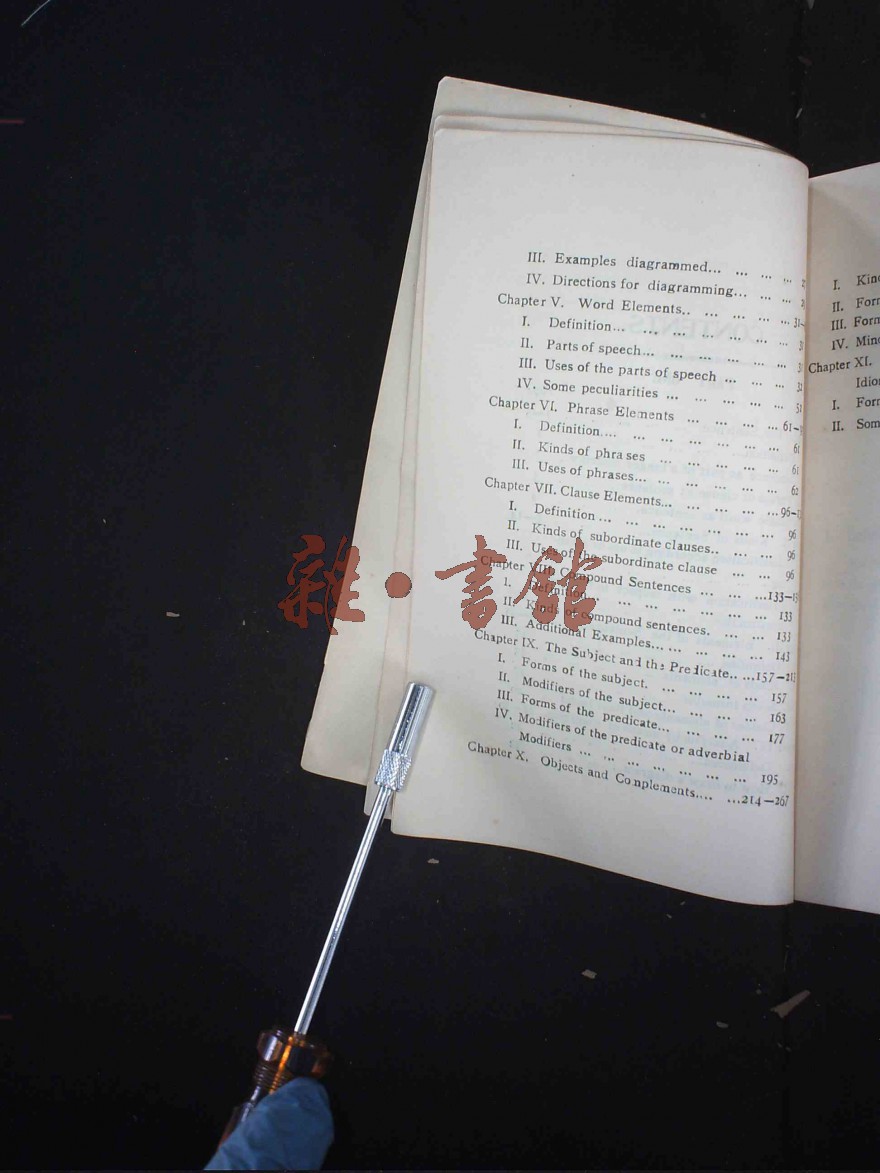 III. Examples diagrammed... ... ... ...
IV. Directions for diagramming... ... ...
Chapter V. Word Elements.. ... ... ... ... 31-
I. Definition... ... ... ... ... ... ... 3
II. Parts of speech... ... ... ... ... ... 3
III. Uses of the parts of speech ... ... ... 32
IV. Some peculiarities ... ... ... ... ... 51
Chapter VI. Phrase Elements ... ... ... ... 61-
I. Definition.... ... ... ... ... ... ... 61
II. Kinds of phrases ... ... ... ... ... 61
III. Uses of phrases... ... ... ... ... ... 62
Chapter VII. Clause Elements... ... ... ... ...96-
I. Definition ... ... ... ... ... ... ... 96
II. Kinds of subordinate clauses.. ... ... 96
III. Uses of the subordinate clause ... ... 96
Chapter VIII. Compound Sentences ... ... ...133-
I. Definition ... ... ... ... ... ... 133
II. Kinds of compound sentences. ... ... 133
III. Additional Examples... ... ... ... ... 143
Chapter IX. The Subject and the Predicate.. ...157-21
I. Forms of the subject. ... ... ... ... 157
II. Modifiers of the subject... ... ... ... 163
III. Forms of the predicate... ... ... ... 177
IV. Modifiers of the predicate or adverbial
Modifiers ... ... ... ... ... ... ... 195
Chapter X. Objects and Complements.... ...214-267
I. Kin
II. For
III. For
IV. Min
Chapter XI.
Idio
I. For
II. Som
雜·書館